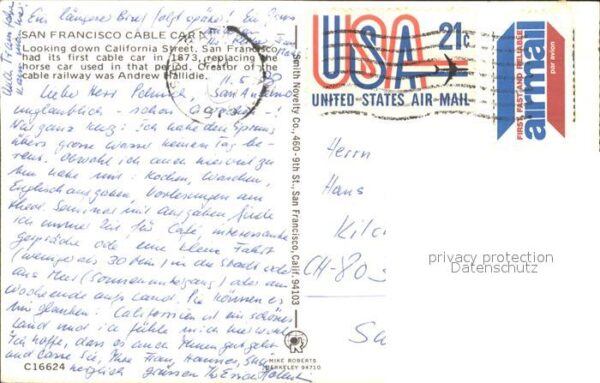 Ein längerer Brief folgt später!
SAN FRANCISCO CABLE CAR
Looking down California Street, San Francisco
had its first cable car in 1873, replacing the
horse car used in that period. Creator of the
cable railway was Andrew Hallidie.
11.5.
Lieber Herr San Anselmo
unglaublich - schon
Nur ganz kurz: Ich habe den Sprung
übers grosse Wasser keinen Tag be-
reut. Obwohl ich auch hier viel zu
tun habe mit: Kochen, Waschen,
Englischaufgaben, Vorlesungen am
theol. Seminar mit Aufgaben finde
ich immer Zeit für Café, interessante
Gespräche oder eine kleine Fahrt
(weniger als 30 Min) in die Stadt oder
ans Meer (Sonnenuntergang) oder am
Wochenende aufs Land. Sie können es
mir glauben: Californien ist ein schönes
Land und ich fühle mich hier wohl.
Ich hoffe, dass es auch Ihnen gut geht
und lasse Sie, Ihre Frau,
herzlich grüssen Ihr
C16624
Smith Novelty Co., 460-9th St., San Francisco, Calif. 94103
MIKE ROBERTS
BERKELEY 94710
USA 21c
UNITED STATES AIR MAIL
FIRST, FAST AND RELIABLE
airmail
par avion
Herrn
Hans
Kilc
CH-80
privacy protection
Datenschutz